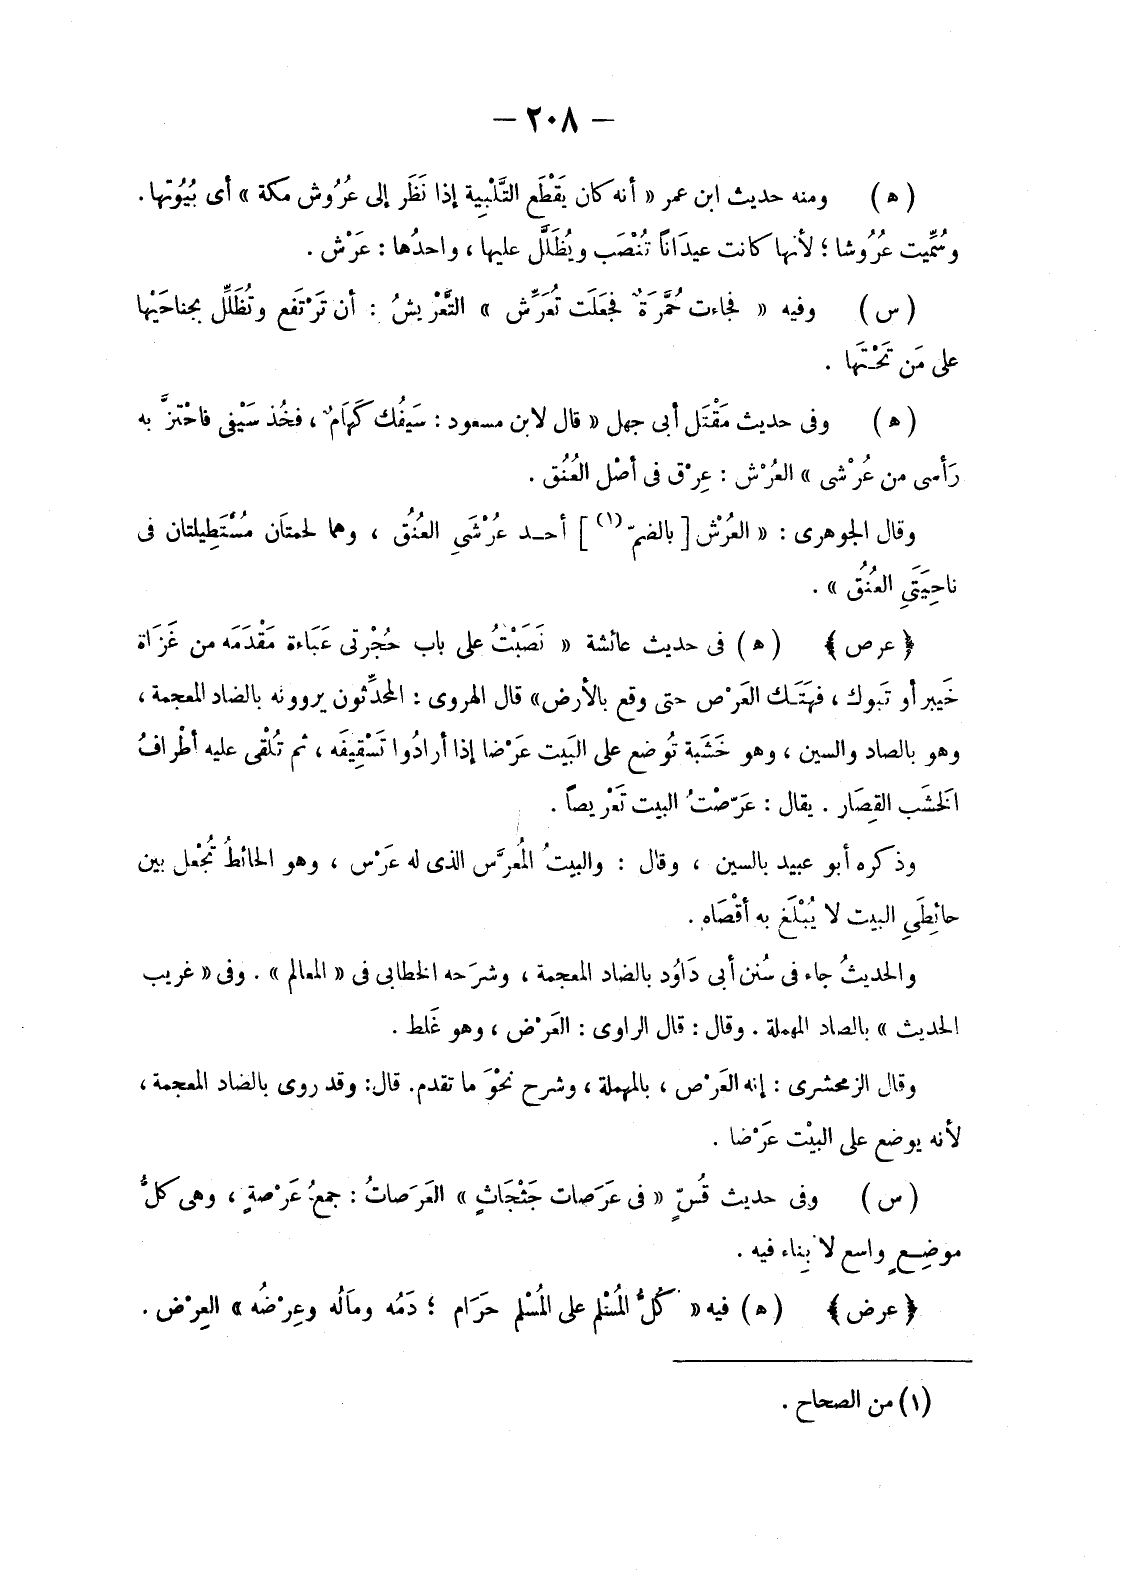 — ٢٠٨ —
( ه ) ومنه حديث ابن عمر « أنه كان يَقْطَع التَّلْبِية إذا نَظَر إلى عُرُوش مكة » أى بُيُوتها .
وسُمِّيت عُرُوشا ؛ لأنها كانت عيدَاناً تُنْصَب ويُظَلَّل عليها ، واحدُها : عَرْش .
( س ) وفيه « فجاءت حُمَّرَةٌ فجعَلَت تُعَرِّش » التَّعْريشُ : أن تَرْتَفع وتُظَلِّل بجناحَيْها
على مَن تَحْـتَها .
( ه ) وفى حديث مَقْتَل أبى جهل « قال لابن مسعود : سَيفُك كَهَامٌ ، فخُذ سَيْفى فاحْتزَّ به
رَأسى من عُرْشى » العُرْش : عِرْق فى أصْل العُنُق .
وقال الجوهرى : « العُرْش [ بالضمّ (١) ] أحـد عُرْشَىِ العُنُق ، وهما لحمتَان مُسْتَطِيلتان فى
ناحِيَتَىِ العُنُق » .
﴿ عرص ﴾ ( ه ) فى حديث عائشة « نَصَبْتُ على باب حُجْرتى عَبَاءة مَقْدَمَه من غَزَاة
خَيبر أو تَبوك ، فهَتَـك العَرْص حتى وقع بالأرض» قال الهروى : المحدِّثون يروونه بالضاد المعجمة ،
وهو بالصاد والسين ، وهو خَشَبة تُوضع على البَيت عَرْضا إذا أرادُوا تَسْقِيفَه ، ثم تُلْقى عليه أطْرافُ
الخَشَب القِصَار . يقال : عَرّصْتُ البيت تَعْريصاً .
وذكره أبو عبيد بالسين ، وقال : والبيتُ المُعرَّس الذى له عَرْس ، وهو الحائطُ تُجْعل بين
حائِطَىِ البيت لا يُبْلَغ به أقْصَاه .
والحديثُ جاء فى سُنن أبى دَاوُد بالضاد المعجمة ، وشرَحه الخطابى فى « المعالم » . وفى « غريب
الحديث » بالصاد المهملة . وقال : قال الراوى : العَرْض ، وهو غَلط .
وقال الزمخشرى : إنه العَرْص ، بالمهملة ، وشرح نحْوَ ما تقدم. قال: وقد روى بالضاد المعجمة ،
لأنه يوضع على البيْت عَرْضا .
( س ) وفى حديث قُسٍّ « فى عَرَصات جَثْجَاثٍ » العَرَصاتُ : جمعُ عَرْصةٍ ، وهى كلُّ
موضِـعٍ واسع لا بِناء فيه .
﴿ عرض ﴾ ( ه ) فيه « كُلُّ المُسْلم على المُسْلم حَرَام ؛ دَمُه ومَالُه وعِرْضُه » العِرْض .
(١) من الصحاح .